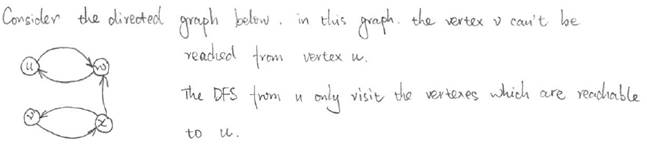 Consider the directed graph below. in this graph. the vertex v can't be
reached from vertex u.
u
w
The DFS from u only visit the vertexes which are reachable
v
x
to u.